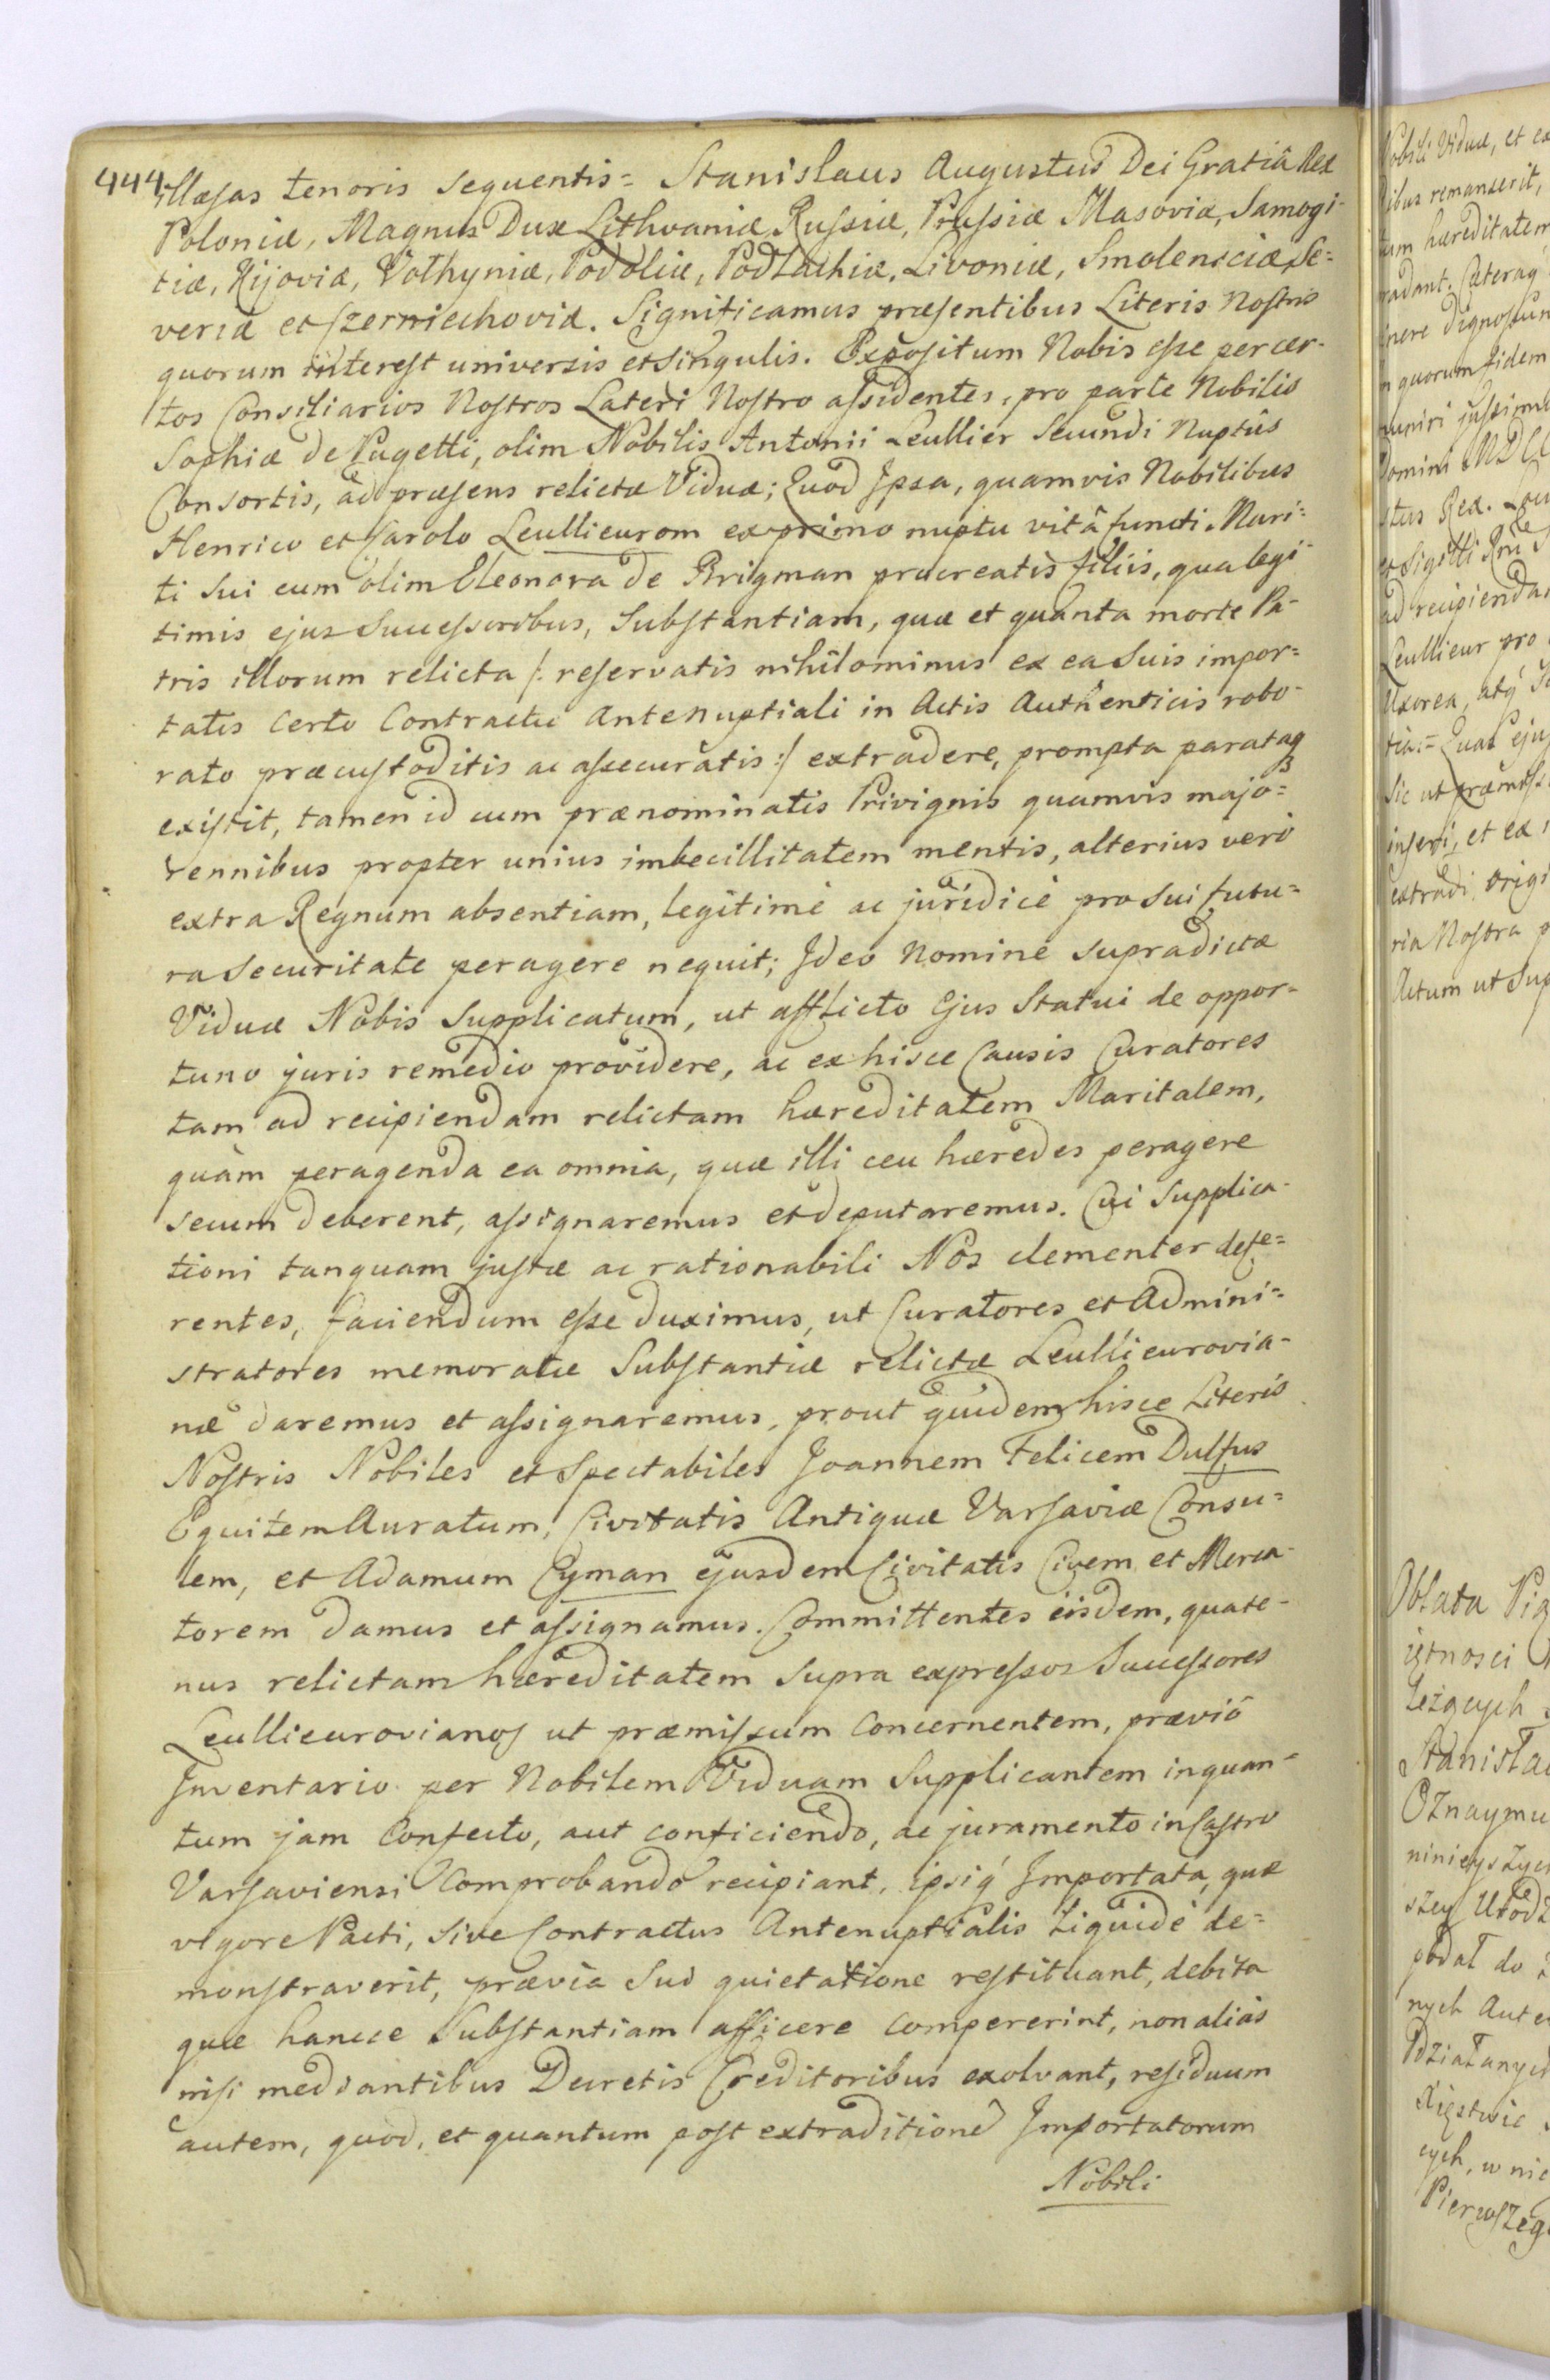 444.
illæsas tenoris sequentis = Stanislaus Augustus Dei Gratiâ Rex
Poloniæ, Magnus Dux Lithvaniæ Russiæ, Prussiæ Masoviæ, Samogi-
tiæ, Kijoviæ, Volhyniæ, Podoliæ, Podlachiæ, Livoniæ, Smolensciæ, Se=
veriæ et Czerniechoviæ. Significamus præsentibus Literis Nostris
quorum interest universis et singulis. Expositum Nobis esse per cer-
tos Consiliarios Nostros Lateri Nostro assidentes, pro parte Nobilis
Sophiæ de Pugetti, olim Nobilis Antonii Leullier Secundi Nuptûs
Consortis, ad præsens relictæ Viduæ; Quod Ipsa, quamvis Nobilibus
Henrico et Carolo Leullieurom ex primo nuptu vitâ functi Mari=
ti Sui cum olim Eleonora de Brigman procreatis filiis, qua legi-
timis ejus Successoribus, Substantiam, quæ et quanta morte Pa-
tris illorum relicta /: reservatis nihilominus ex ea Suis impor=
tatis certo Contractu Antenuptiali in Actis Authenticis robo-
rato præcustoditis ac assecuratis :/ extradere, prompta parataq3
existit, tamen id cum prænominatis Privignis quamvis majo=
rennibus propter unius imbecillitatem mentis, alterius verò
extra Regnum absentiam, legitimè ac juridicè pro Sui futu=
ra Securitate peragere nequit; Ideo Nomine Supradictæ
Viduæ Nobis Supplicatum, ut afflicto Ejus Statui de oppor-
tuno juris remedio providere, ac ex hisce Causis Curatores
tam ad recipiendam relictam hæreditatem Maritalem,
quàm peragenda ea omnia, quæ illi ceu hæredes peragere
secum deberent, assignaremus et deputaremus. Cui Supplica-
tioni tanquam justæ ac rationabili Nos clementer defe=
rentes, faciendum esse duximus, ut Curatores et Admini=
stratores memoratæ Substantiæ relictæ Leullieurovia-
næ daremus et assignaremus, prout quidem hisce Literis
Nostris Nobiles et Spectabiles Joannem Felicem Dulfus
Equitem Auratum, Civitatis Antiquæ Varsaviæ Consu=
lem, et Adamum Cyman ejusdem Civitatis Civem et Merca-
torem damus et assignamus. Committentes eisdem, quate-
nus relictam hæreditatem Supra expressos Successores
Leullieurovianos ut præmissum Concernentem, præviô
Inventario per Nobilem Viduam Supplicantem in quan-
tum jam Confecto, aut conficiendo, ac juramento in Castro
Varsaviensi Comprobando recipiant, ipsiq́ Importata, quæ
vigore Pacti, Sive Contractus Antenuptialis Liquidè de=
monstraverit, prævia Sui quietatione restituant, debita
quæ hancce Substantiam afficere compererint, non aliàs
nisi mediantibus Decretis Creditoribus exolvant, residuum
autem, quod, et quantum post extraditione Importatorum
Nobili
Nobili Viduæ, et ex
ibus remanserit,
tam hæreditatem
radant. Cæteraq́
nere dignoscun
n quorum fidem
muniri jussimu
Domini MDCC
stus Rex. Loc
ad recipienda
Leullieur pro
Uxorea, atq́
tia = Quas ejus
Sic ut præmiss
inseri, et ex
extradi. origi
ria Nostra p
Actum ut Sup
Oblata
iętności
leżących
Stanisła
Oznaymu
ninieyszym
szey Urodz
podał do
nych Aut
Działanych
Xięstwie
cych, w nie
Pierwszego